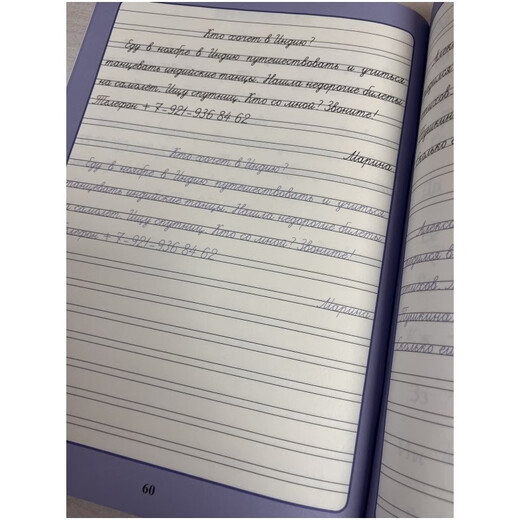 Кто хочет в Индию?
Еду в ноябре в Индию путешествовать и учиться
танцевать индийские танцы. Нашла недорогие билеты
на самолет. Ищу спутниц. Кто со мной? Звоните!
Телефон + 7-921-936 84 62
Марина
Кто хочет в Индию?
Еду в ноябре в Индию путешествовать и учиться
танцевать индийские танцы. Нашла недорогие билеты
самолет. Ищу спутниц. Кто со мной? Звоните!
+ 7-921-936 84 62
Марина
60